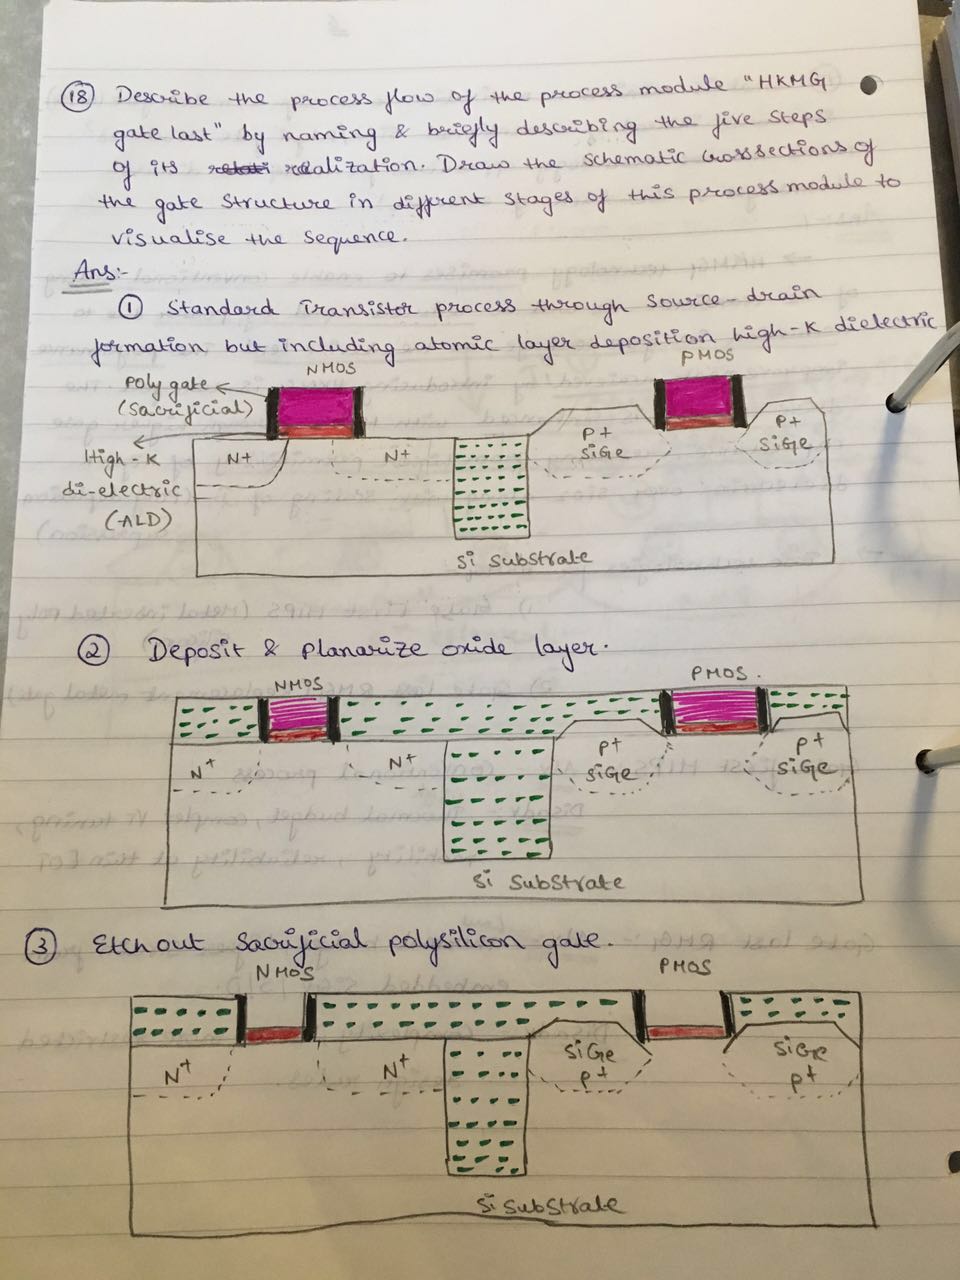 18 Describe the process flow of the process module "HKMG
gate last" by naming & briefly describing the five steps
of its realization. Draw the schematic crossections of
the gate structure in different stages of this process module to
visualise the sequence.
Ans:-
1 Standard Transistor process through source-drain
formation but including atomic layer deposition high-K dielectric
NMOS
PMOS
Poly gate
(sacrificial)
High-K
di-electric
(ALD)
N+
N+
P+
SiGe
P+
SiGe
Si Substrate
2 Deposit & planarize oxide layer.
NMOS
PMOS.
N+
N+
P+
SiGe
P+
SiGe
Si Substrate
3 Etch out sacrificial polysilicon gate.
NMOS
PMOS
N+
N+
SiGe
P+
SiGe
P+
Si Substrate